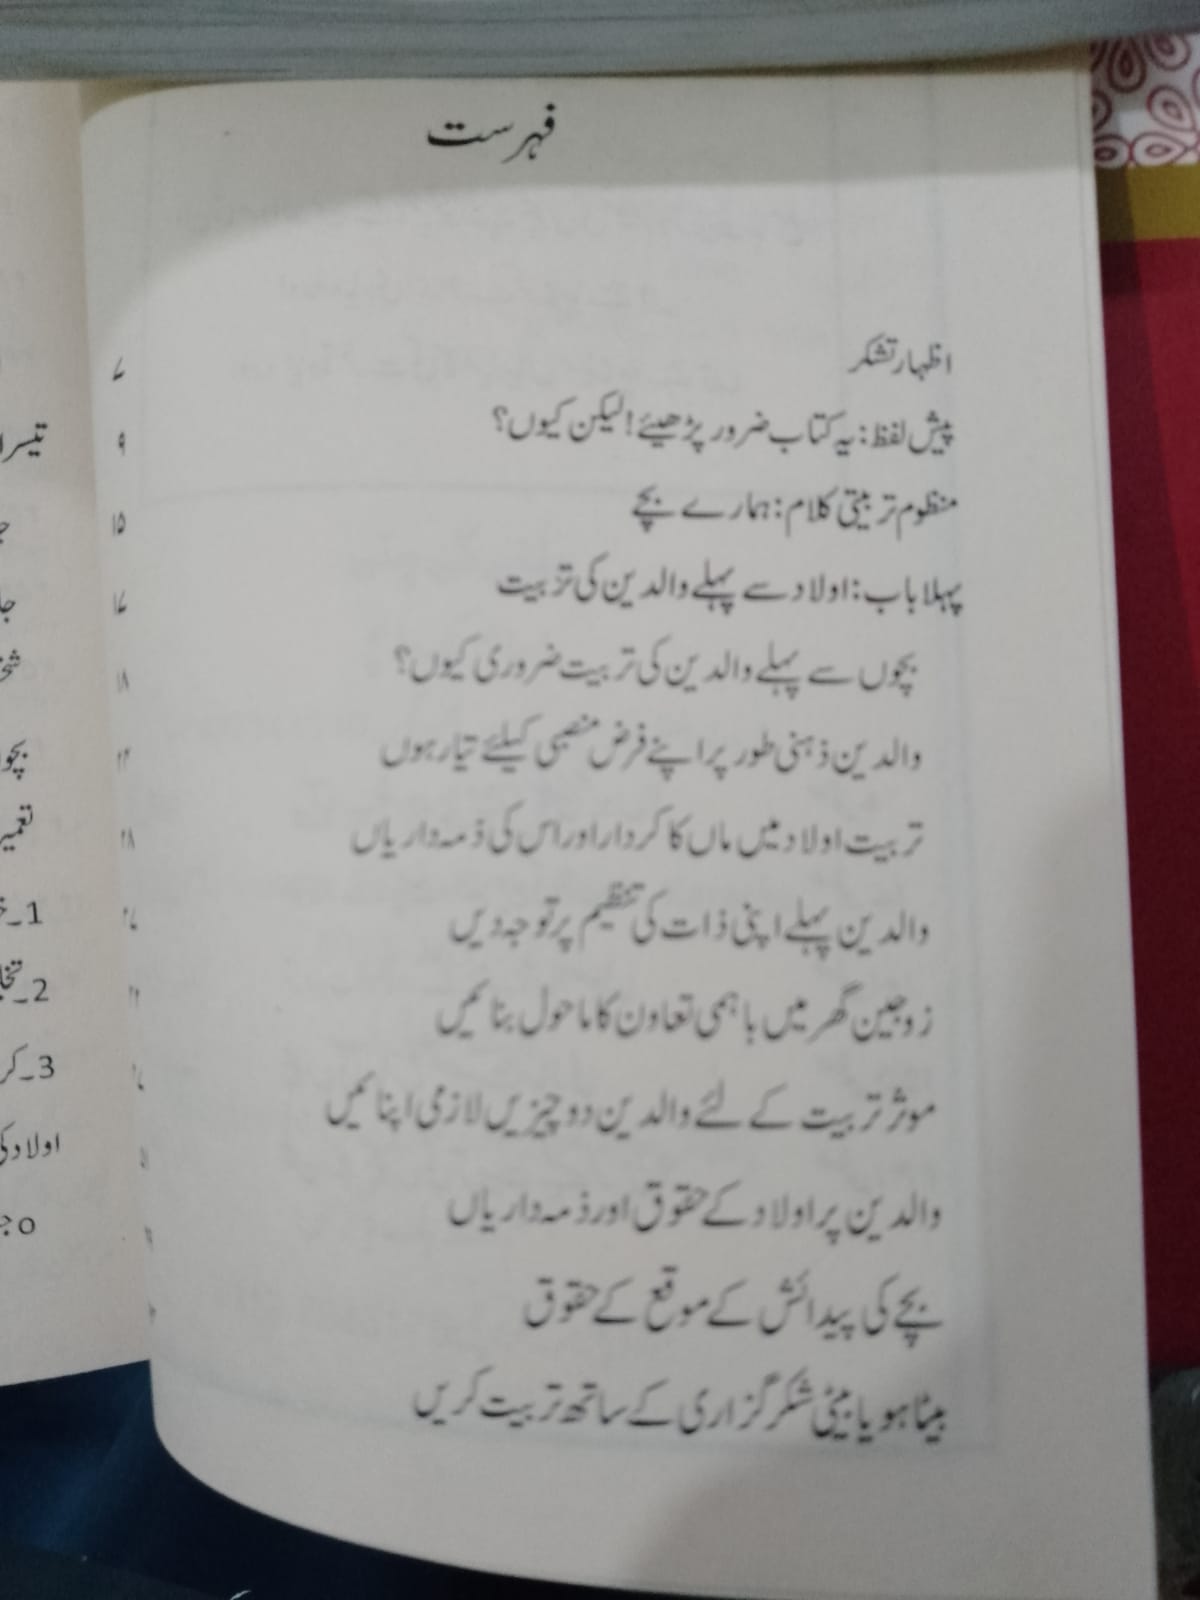 فہرست
اظہار تشکر ۷
پیش لفظ: یہ کتاب ضرور پڑھیئے! لیکن کیوں؟ ۹
منظوم تربیتی کلام: ہمارے بچے ۱۵
پہلا باب: اولاد سے پہلے والدین کی تربیت ۱۷
بچوں سے پہلے والدین کی تربیت ضروری کیوں؟ ۱۸
والدین ذہنی طور پر اپنے فرض منصبی کیلئے تیار ہوں
تربیت اولاد میں ماں کا کردار اور اس کی ذمہ داریاں ۲۸
والدین پہلے اپنی ذات کی تنظیم پر توجہ دیں
زوجین گھر میں باہمی تعاون کا ماحول بنائیں
موثر تربیت کے لئے والدین دو چیزیں لازمی اپنائیں
والدین پر اولاد کے حقوق اور ذمہ داریاں
بچے کی پیدائش کے موقع کے حقوق
بیٹا ہو یا بیٹی شکر گزاری کے ساتھ تربیت کریں
تیسرا
تعمیر
1۔
2۔
3۔
اولاد کی